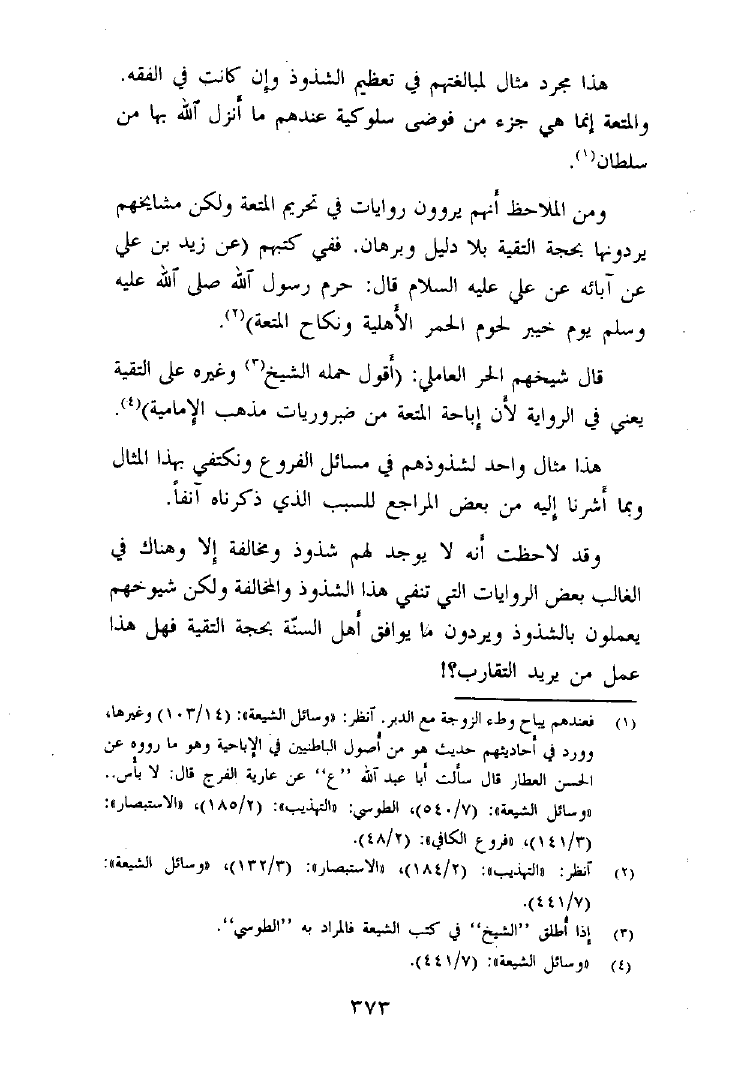 هذا مجرد مثال لمبالغتهم في تعظيم الشذوذ وإن كانت في الفقه.
والمتعة إنما هي جزء من فوضى سلوكية عندهم ما أنزل الله بها من
سلطان(١).
ومن الملاحظ أنهم يروون روايات في تحريم المتعة ولكن مشايخهم
يردونها بحجة التقية بلا دليل وبرهان. ففي كتبهم (عن زيد بن علي
عن آبائه عن علي عليه السلام قال: حرم رسول الله صلى الله عليه
وسلم يوم خيبر لحوم الحمر الأهلية ونكاح المتعة)(٢).
قال شيخهم الحر العاملي: (أقول حمله الشيخ(٣) وغيره على التقية
يعني في الرواية لأن إباحة المتعة من ضروريات مذهب الإمامية)(٤).
هذا مثال واحد لشذوذهم في مسائل الفروع ونكتفي بهذا المثال
وبما أشرنا إليه من بعض المراجع للسبب الذي ذكرناه آنفاً.
وقد لاحظت أنه لا يوجد لهم شذوذ ومخالفة إلا وهناك في
الغالب بعض الروايات التي تنفي هذا الشذوذ والمخالفة ولكن شيوخهم
يعملون بالشذوذ ويردون ما يوافق أهل السنّة بحجة التقية فهل هذا
عمل من يريد التقارب؟!
(١) فعندهم يباح وطء الزوجة مع الدبر. أنظر: «وسائل الشيعة»: (١٠٣/١٤) وغيرها،
وورد في أحاديثهم حديث هو من أصول الباطنيين في الإباحية وهو ما رووه عن
الحسن العطار قال سألت أبا عبد الله ''ع'' عن عارية الفرج قال: لا بأس..
«وسائل الشيعة»: (٥٤٠/٧)، الطوسي: «التهذيب»: (١٨٥/٢)، «الاستبصار»:
(١٤١/٣)، «فروع الكافي»: (٤٨/٢).
(٢) أنظر: «التهذيب»: (١٨٤/٢)، «الاستبصار»: (١٣٢/٣)، «وسائل الشيعة»:
(٤٤١/٧).
(٣) إذا أطلق ''الشيخ'' في كتب الشيعة فالمراد به ''الطوسي''.
(٤) «وسائل الشيعة»: (٤٤١/٧).
٣٧٣